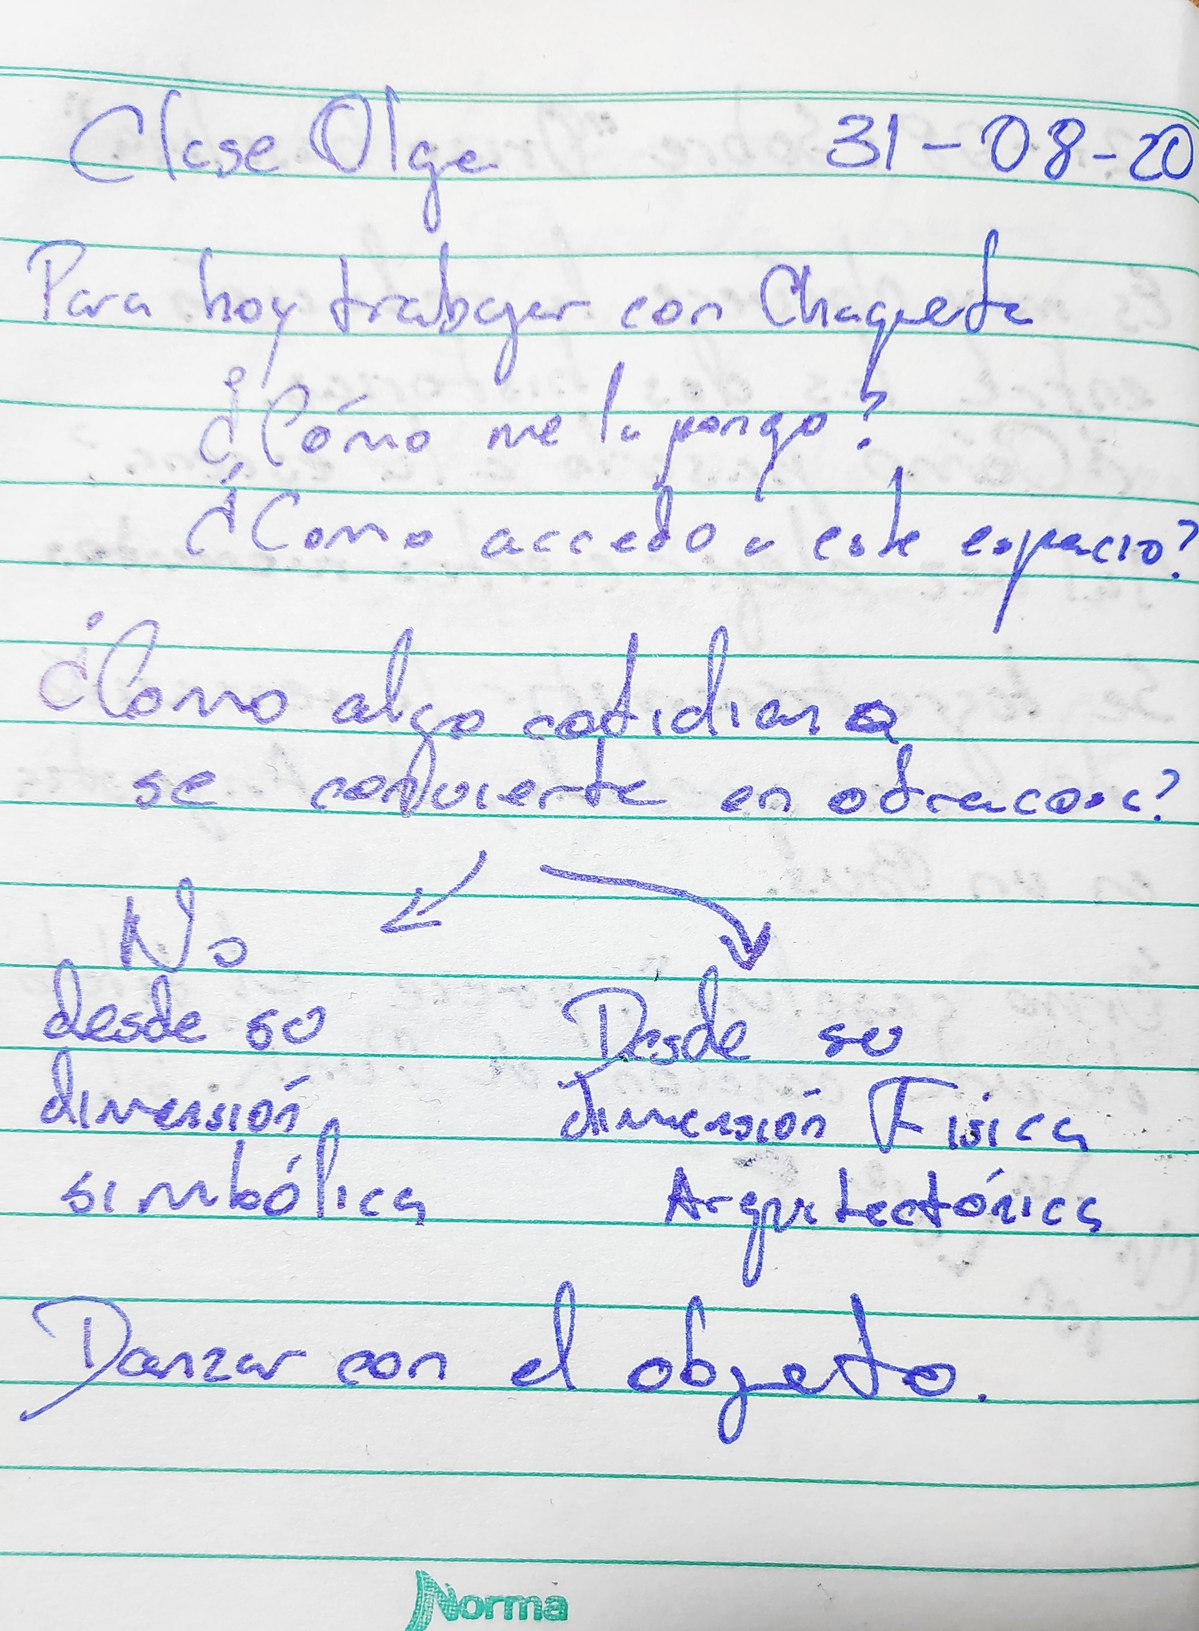 Clase Olga 31-08-20
Para hoy trabajar con Chaqueta
¿Cómo me la pongo?
¿Como accedo a este espacio?
¿Como algo cotidiano
se convierte en otra cosa?
No
desde su
dimensión
simbólica
Desde su
dimensión Fisica
Arquitectónica
Danzar con el objeto.
Norma